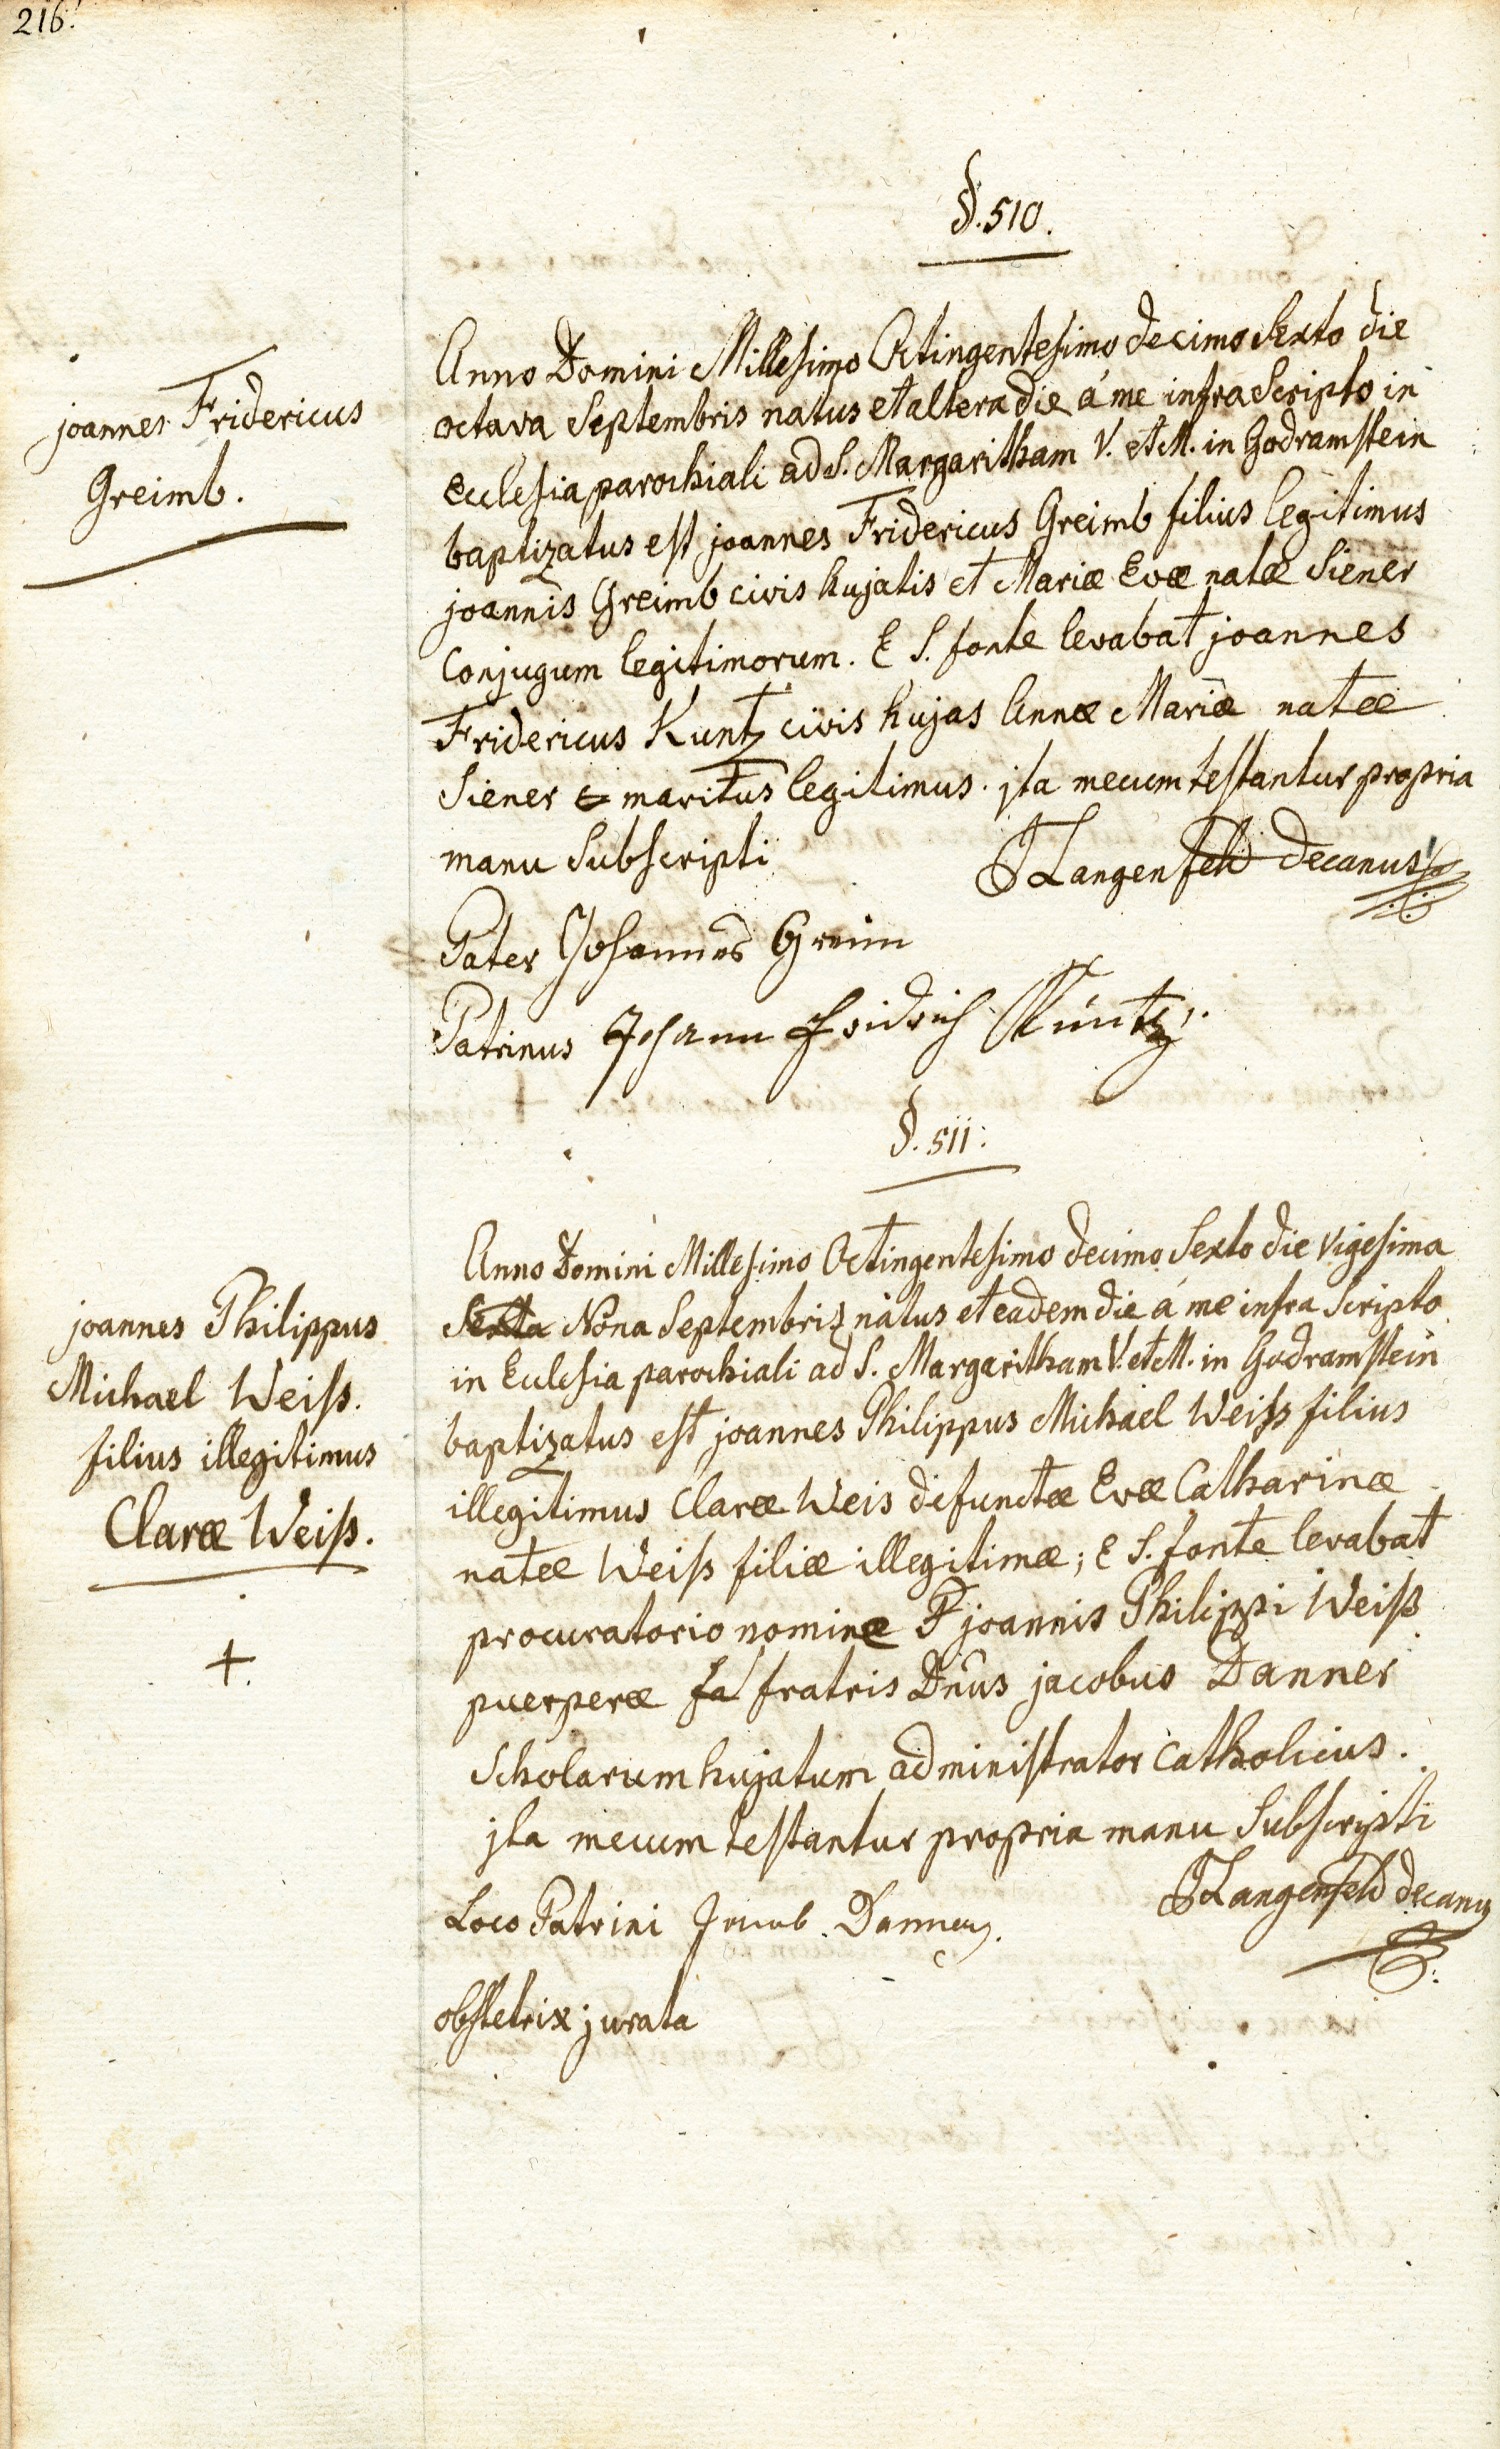 216.
§. 510.
joannes Fridericus
Greimb.
Anno Domini Millesimo Octingentesimo decimo Sexto die
octava Septembris natus et altera die á me infra Scripto in
Ecclesia parochiali ad S. Margaritham V. et M. in Godramstein
baptizatus est joannes Fridericus Greimb filius legitimus
joannis Greimb civis hujatis et Mariæ Evæ natæ Siener
Conjugum legitimorum. E S. fonte levabat joannes
Fridericus Kuntz civis hujas Annæ Mariæ natæ
Siener maritus legitimus. jta mecum testantur propria
manu Subscripti
JLangenfeld decanus
Pater Johannes Greim
Patrinus Johann Fridrich Kuntz.
§. 511:
joannes Philippus
Michael Weiß.
filius illegitimus
Claræ Weiß.
+.
Anno Domini Millesimo Octingentesimo decimo Sexto die vigesima
Sexta Nona Septembris natus et eadem die á me infra Scripto
in Ecclesia parochiali ad S. Margaritham V. et M. in Godramstein
baptizatus est joannes Philippus Michael Weiß filius
illegitimus Claræ Weis defunctæ Evæ Catharinæ
natæ Weiß filiæ illegitimæ; E S. fonte levabat
procuratorio nomine P joannis Philippi Weiß
puerperæ fa fratris Dnus jacobus Danner
Scholarum hujatum administrator Catholicus.
jta mecum testantur propria manu Subscripti
JLangenfeld decanus
Loco Patrini Jacob Danner.
obstetrix jurata